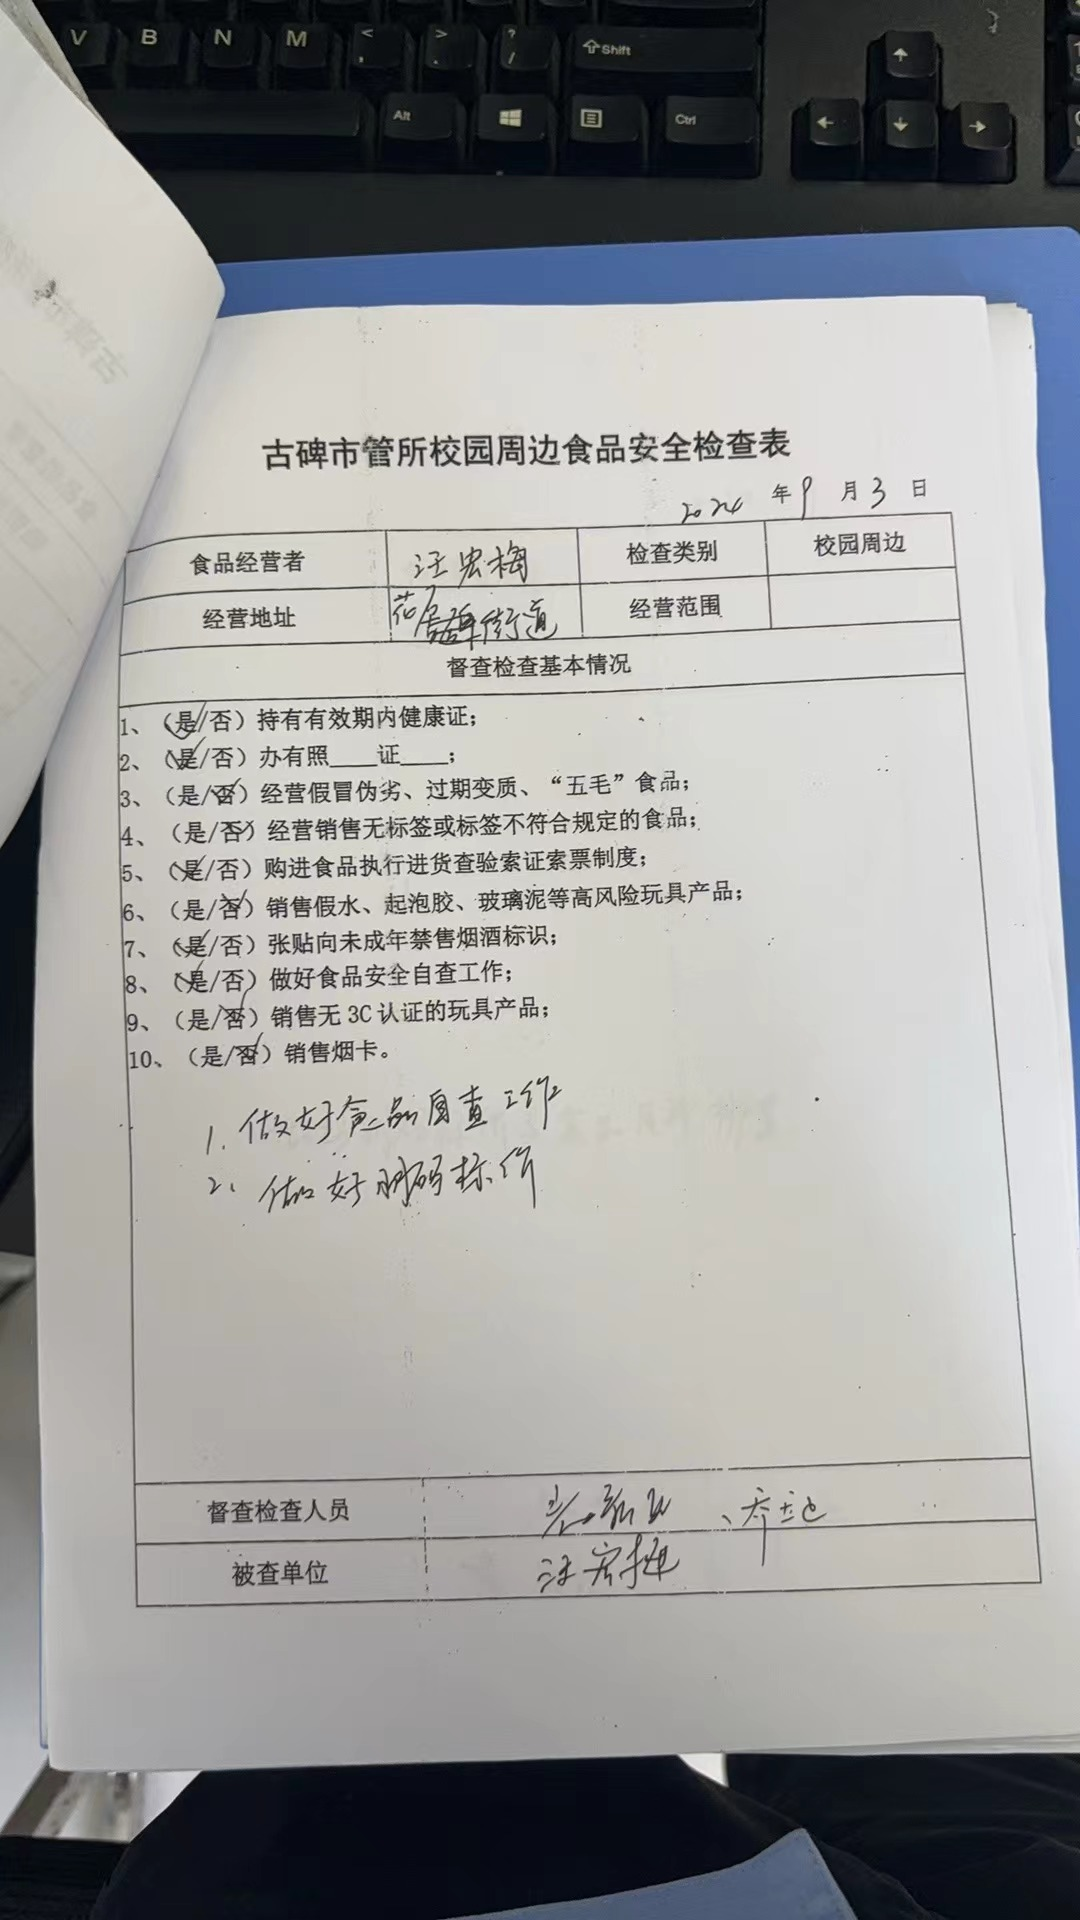 V B N M < , > . ? / Shift
Alt Ctrl
古碑市管所校园周边食品安全检查表
2024 年 9 月 3 日
食品经营者 汪宏梅 检查类别 校园周边
经营地址 古碑街道 经营范围
督查检查基本情况
1、（是/否）持有有效期内健康证；
2、（是/否）办有照____证____；
3、（是/否）经营假冒伪劣、过期变质、“五毛”食品；
4、（是/否）经营销售无标签或标签不符合规定的食品；
5、（是/否）购进食品执行进货查验索证索票制度；
6、（是/否）销售假水、起泡胶、玻璃泥等高风险玩具产品；
7、（是/否）张贴向未成年禁售烟酒标识；
8、（是/否）做好食品安全自查工作；
9、（是/否）销售无 3C 认证的玩具产品；
10、（是/否）销售烟卡。
1. 做好食品自查工作
2、做好明码标价
督查检查人员
被查单位 汪宏梅